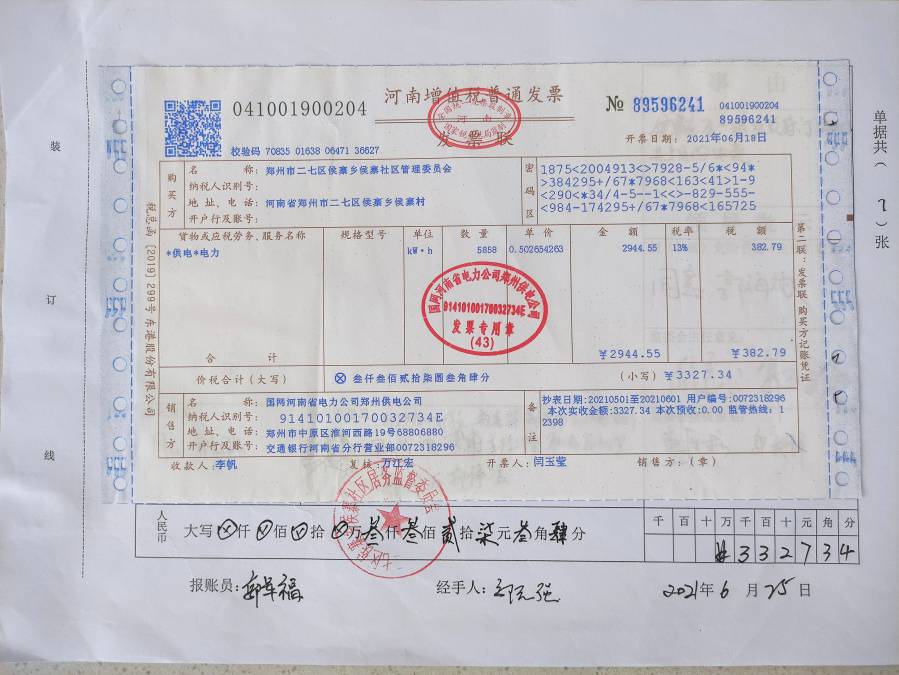 河南增值税普通发票
041001900204
№ 89596241
041001900204
89596241
发票联
校验码 70835 01638 06471 36627
开票日期: 2021年06月18日
购买方
名称: 郑州市二七区侯寨乡侯寨社区管理委员会
纳税人识别号:
地址、电话: 河南省郑州市二七区侯寨乡侯寨村
开户行及账号:
密码区
1875<2004913<>7928-5/6*<94*
>384295+/67*7968<163<41>1-9
<290<*34/4-5--1<<>-829-555-
<984-174295+/67*7968<165725
货物或应税劳务、服务名称 规格型号 单位 数量 单价 金额 税率 税额
*供电*电力 kW·h 5858 0.502654263 2944.55 13% 382.79
国网河南省电力公司郑州供电公司
91410100170032734E
发票专用章
(43)
合计 ¥2944.55 ¥382.79
价税合计(大写) ⊗ 叁仟叁佰贰拾柒圆叁角肆分 (小写) ¥3327.34
销售方
名称: 国网河南省电力公司郑州供电公司
纳税人识别号: 91410100170032734E
地址、电话: 郑州市中原区淮河西路19号68806880
开户行及账号: 交通银行河南省分行营业部0072318296
备注
抄表日期:20210501至20210601 用户编号:0072318296
本次实收金额:3327.34 本次预收:0.00 监管热线:1
2398
收款人: 李帆 复核: 万江宏 开票人: 闫玉莹 销售方:(章)
税总函〔2019〕299号东港股份有限公司
第二联:发票联 购买方记账凭证
装
订
线
单据共( 7 )张
人民币
大写 ⊗仟 ⊗佰 ⊗拾 ⊗万 叁仟 叁佰 贰拾 柒元 叁角 肆分
千 百 十 万 千 百 十 元 角 分
¥ 3 3 2 7 3 4
报账员:
经手人:
2021年 6 月 25 日